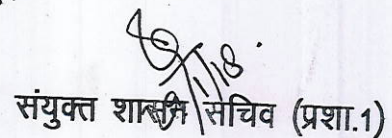 संयुक्त शासन सचिव (प्रशा.1)